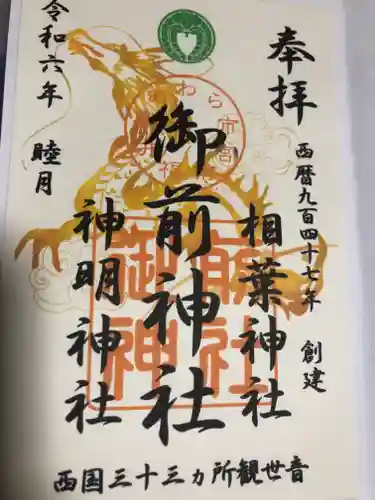 奉拝
西暦九百四十七年 創建
相葉神社
御前神社
神明神社
令和六年 睦月
御前神社
西国三十三ヵ所観世音